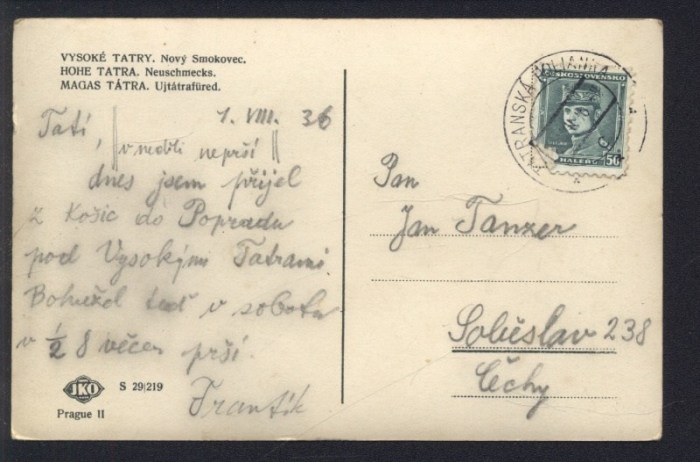 VYSOKÉ TATRY. Nový Smokovec.
HOHE TATRA. Neuschmecks.
MAGAS TÁTRA. Ujtátrafüred.
1. VIII. 36
Tati,
v neděli neprší
dnes jsem přijel
z Košic do Popradu
pod Vysokými Tatrami.
Bohužel teď v sobotu
v ½ 8 večer prší.
Frantík
JKO S 29|219
Prague II
TATRANSKÁ POLIANKA
ČESKOSLOVENSKO
50
HALÉŘŮ
Pan
Jan Tanzer
Soběslav 238
Čechy